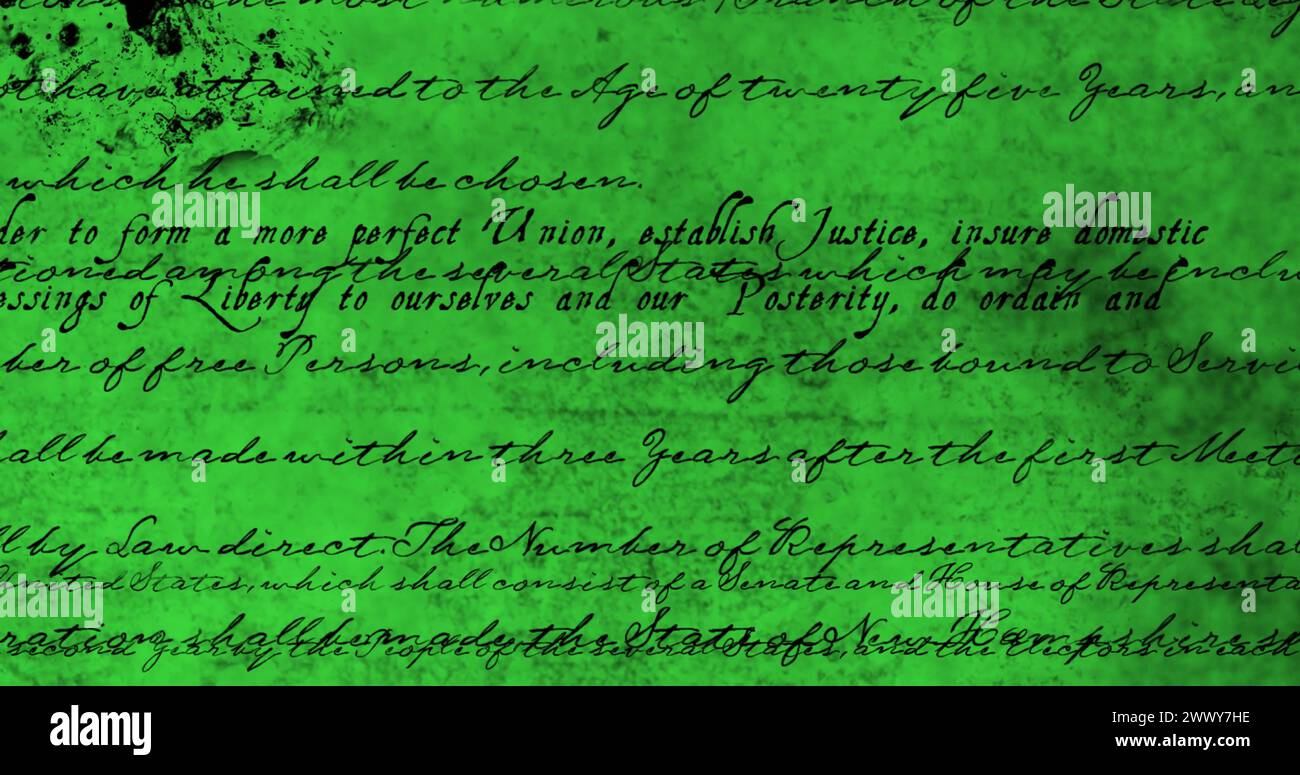 the most numerous Branch of the State
have attained to the Age of twenty five Years, an
which he shall be chosen.
der to form a more perfect Union, establish Justice, insure domestic
tioned among the several States which may be inclu
essings of Liberty to ourselves and our Posterity, do ordain and
ber of free Persons, including those bound to Servi
hall be made within three Years after the first Meeti
ll by Law direct. The Number of Representatives shal
United States, which shall consist of a Senate and House of Representa
ration shall be made, the State of New Hampshire s
second Year by the People of the several States, and the Electors in each
alamy
a
alamy
Image ID: 2WWY7HE
www.alamy.com